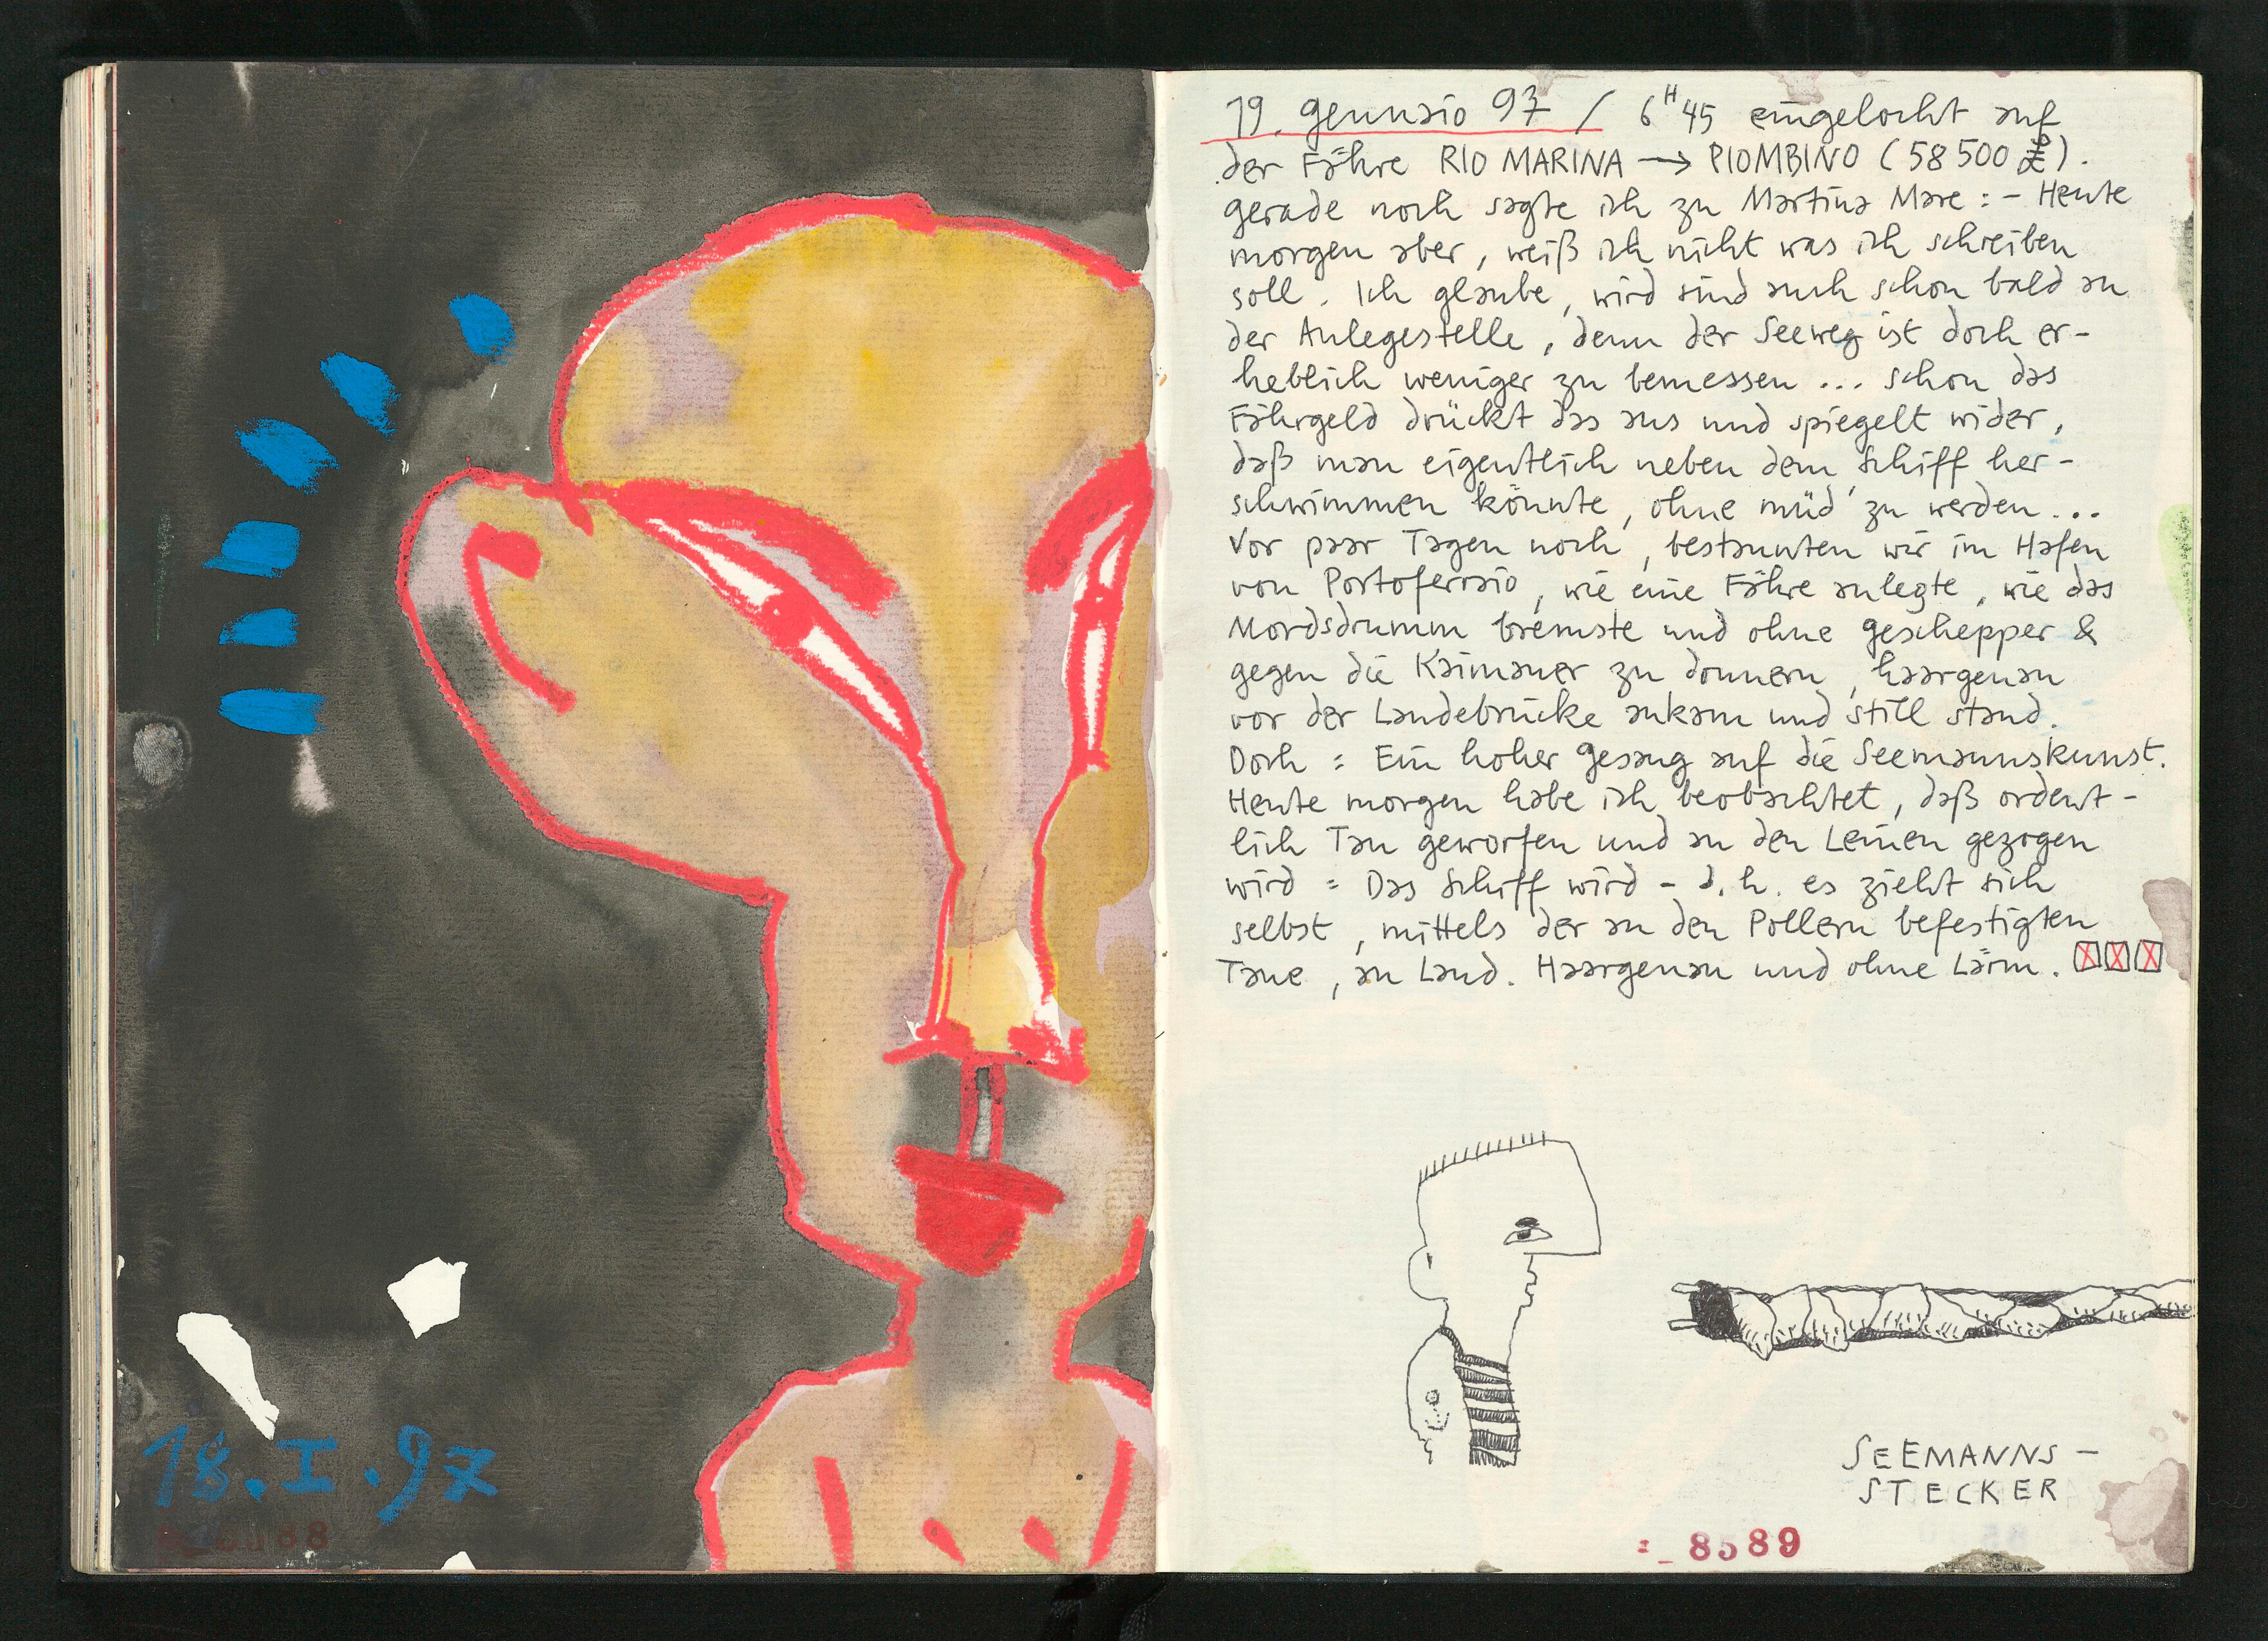 18.I.97
19. gennaio 97 / 6ᴴ45 eingelocht auf
der Fähre RIO MARINA → PIOMBINO (58 500 ₤).
gerade noch sagte ich zu Martina Mare : – Heute
morgen aber, weiß ich nicht was ich schreiben
soll. Ich glaube, wird sind auch schon bald an
der Anlegestelle, denn der Seeweg ist doch er-
heblich weniger zu bemessen ... schon das
Fährgeld drückt das aus und spiegelt wider,
daß man eigentlich neben dem Schiff her-
schwimmen könnte, ohne müd' zu werden ...
Vor paar Tagen noch, bestaunten wir im Hafen
von Portoferraio, wie eine Fähre anlegte, wie das
Mordsdrumm bremste und ohne geschepper &
gegen die Kaimauer zu donnern, haargenau
vor der Landebrücke ankam und still stand.
Doch : Ein hoher Gesang auf die Seemannskunst.
Heute morgen habe ich beobachtet, daß ordent-
lich Tau geworfen und an den Leinen gezogen
wird : Das Schiff wird – d.h. es zieht sich
selbst, mittels der an den Pollern befestigten
Taue, an Land. Haargenau und ohne Lärm.
SEEMANNS-
STECKER
8589